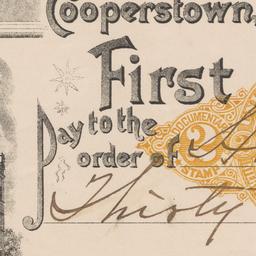 Cooperstown,
First
Pay to the
order of
Thirty
DOCUMENTA
2
STAMP